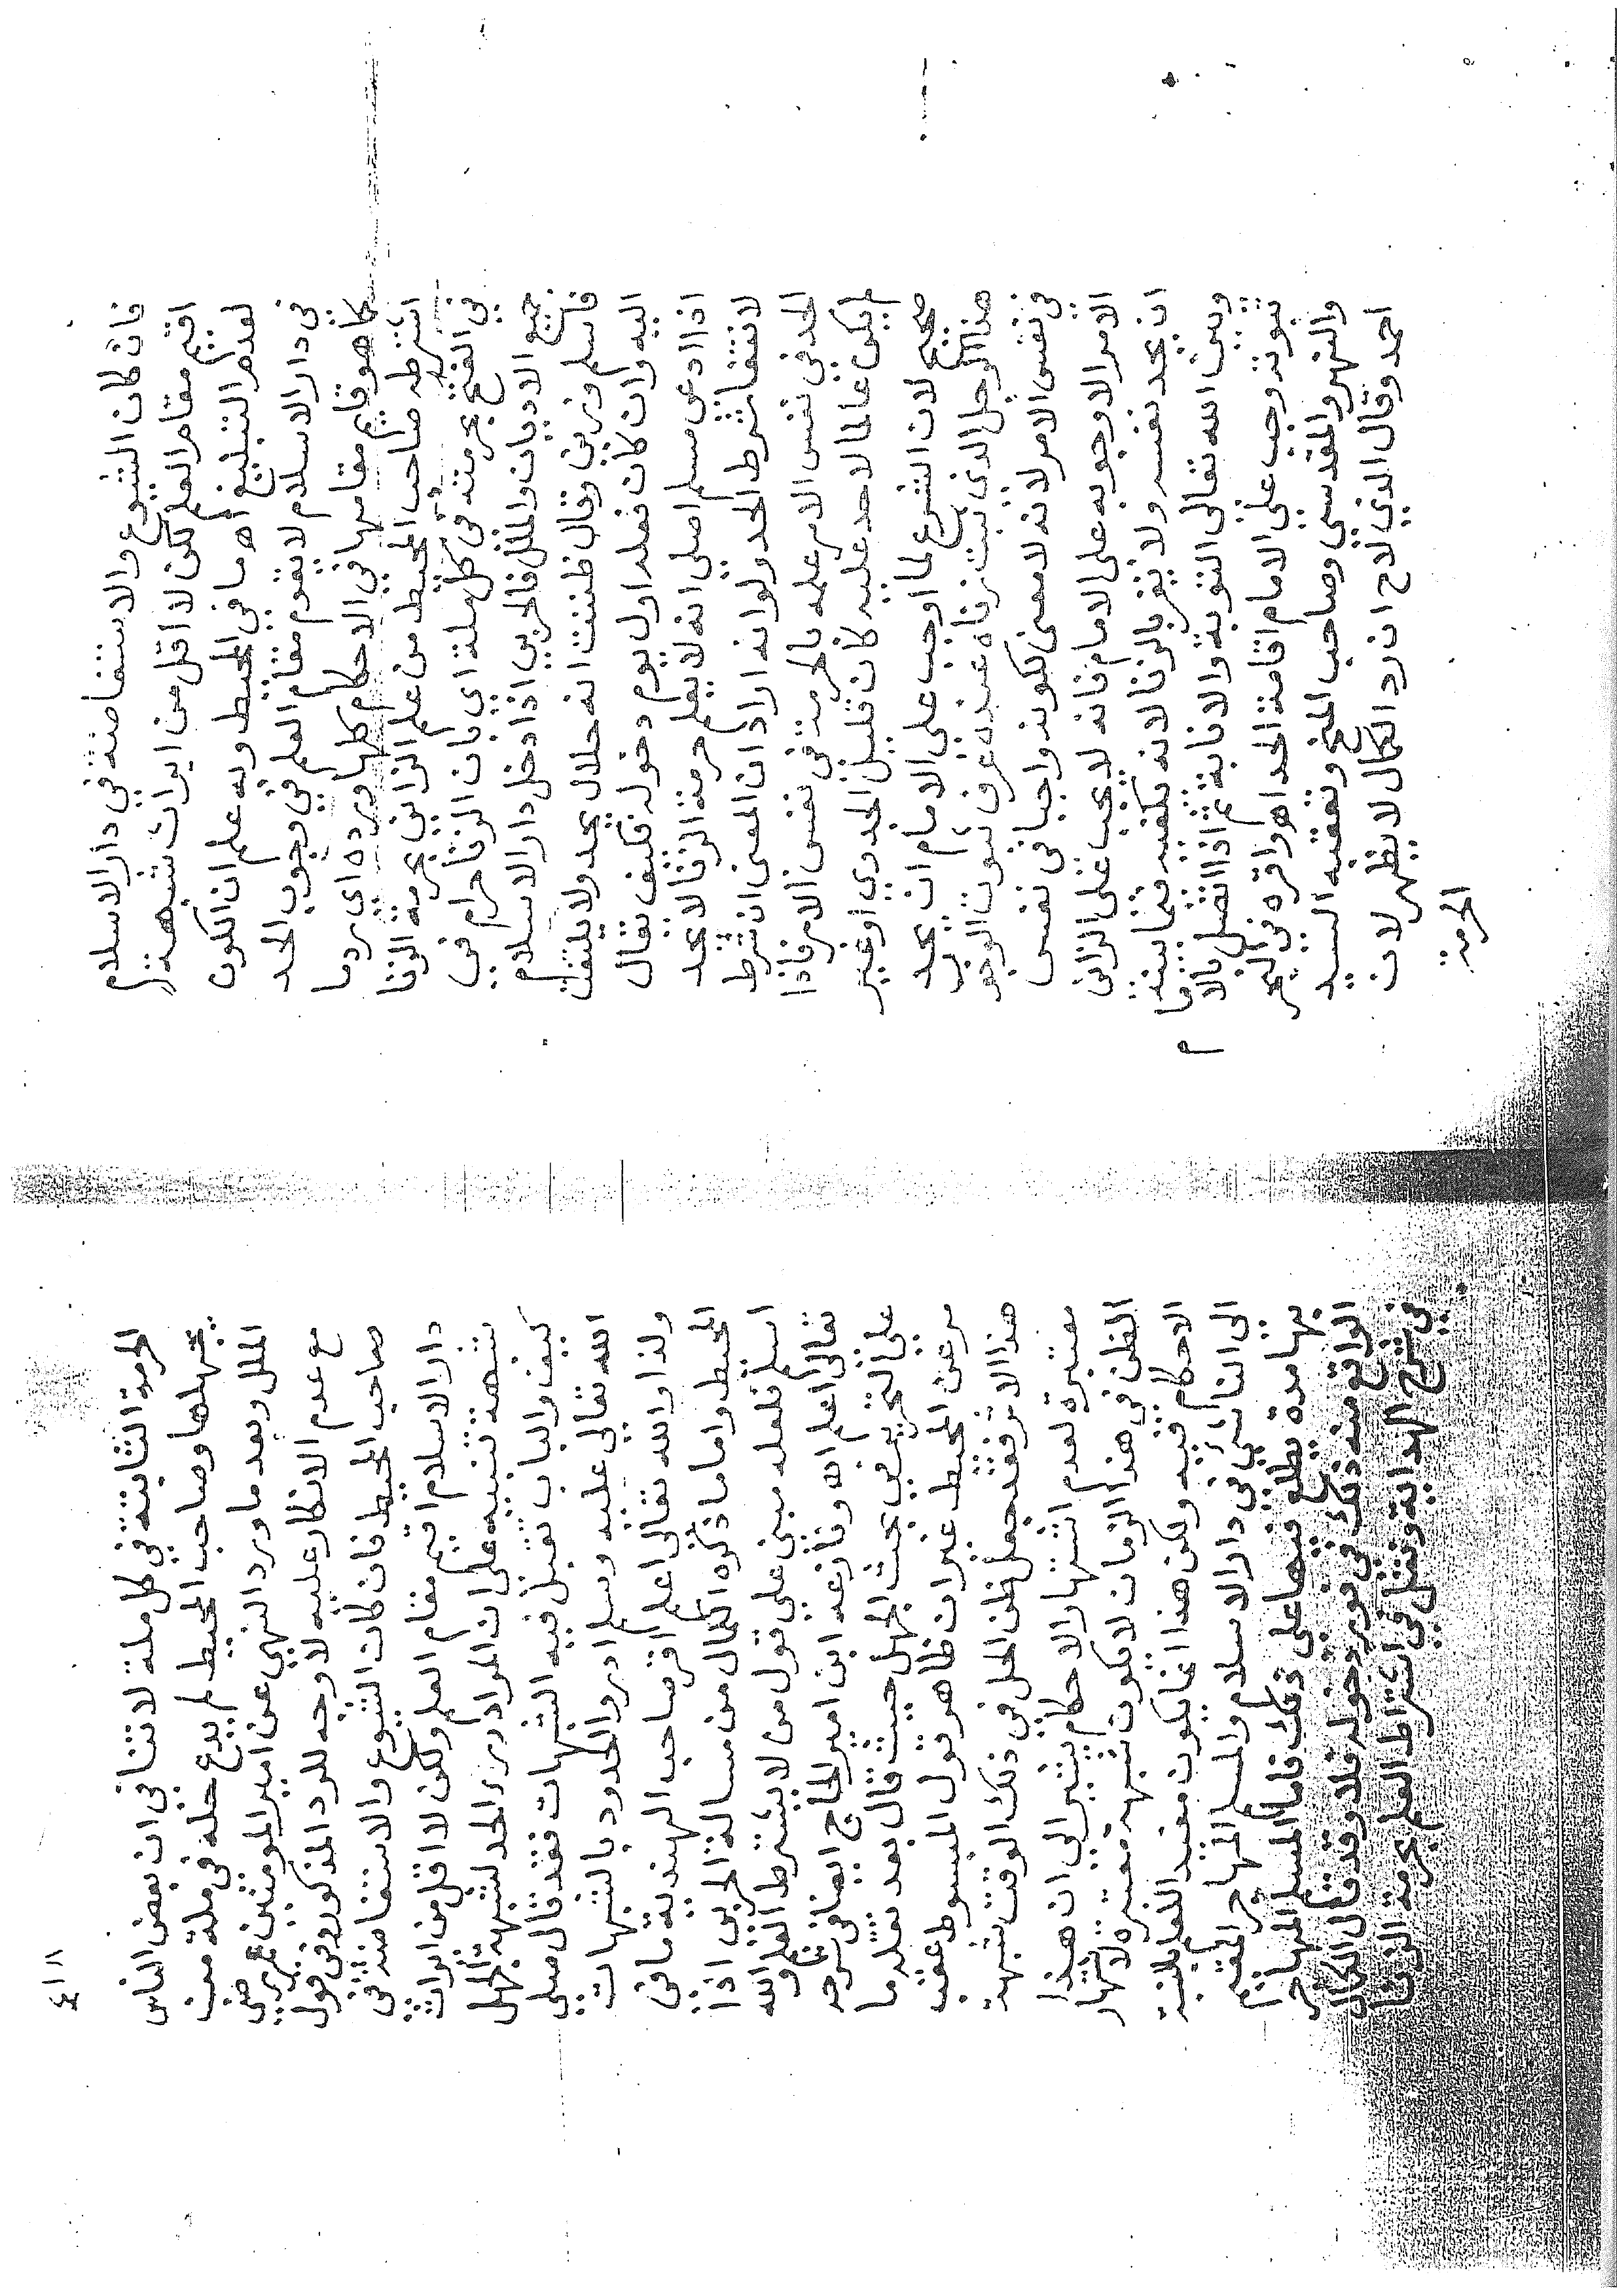 فان كان الشيوع والاستفاضة في دار الاسلام
اقيم مقام العلم لكن لا اقل من ايراث شبهة
لعدم التبليغ اه ما في المحيط وبه علم ان الكون
في دار الاسلام لا يقوم مقام العلم في وجوب الحد
كما هو قايم مقامها في الاحكام كلها ويرده اي يرد ما
اشترطه صاحب المحيط من علم الزاني بحرمة الزنا
في الفتح بحرمته في كل ملة اي بان الزنا حرام في
جميع الاديان والملل فالحربي اذا دخل دار الاسلام
فاسلم فزنى وقال ظننت انه حلال يحد ولا يلتفت
اليه وان كان فعله اول يوم دخوله فكيف يقال
اذا ادعى مسلم اصلي انه لا يعلم حرمة الزنا لا يحد
لانتفا شرط الحد ولو انه اراد ان المعنى ان شرط
الحد في نفس الامر علمه بالحرمة في نفس الامر فاذا
لم يكن عالما لا حد عليه كان قليل الجدوى او غير
صحيح لان الشرع لما اوجب على الامام ان يحد
هذا الرجل الذي ثبت زناه عنده عرف ثبوت الوجوب
في نفس الامر لانه لا معنى لكونه واجبا في نفس
الامر الا وجوبه على الامام فانه لا يجب على الزاني
ان يحد نفسه ولا يقر بالزنا لانه تكفيه فيما بينه
وبين الله تعالى التوبة والانابة ثم اذا اتصل بالامام
ثبوته وجب على الامام اقامة الحد اه واقره في البحر
والنهر والمقدسي وصاحب المنح وتعقبه السيد
احمد وقال الذي لاح ان رد الكمال لا يظهر لان
الحرمة
٤١٨
الحرمة الثابتة في كل ملة لا تنافي ان بعض الناس
يجهلها وصاحب المحيط لم يدع حله في ملة من
الملل وبعد ما ورد النهي عن امير المومنين عمر رضي
مع عدم الانكار عليه لا وجه للرد المذكور وفي قول
صاحب المحيط فان كان الشيوع والاستفاضة في
دار الاسلام اقيم مقام العلم ولكن لا اقل من ايراث
شبهة تنبيه على ان المراد درء الحد لشبهة الجهل
كيف والباب تقبل فيه الشبهات فقد قال صلى
الله تعالى عليه وسلم ادروا الحدود بالشبهات
ولذا والله تعالى اعلم اقر صاحب الهندية ما في
المحيط واما ما ذكره الكمال من مسالة الحربي اذا
اسلم فلعله مبني على قول من لا يشترط العلم والله
تعالى اعلم اه ونازعه ابن امير الحاج ايضا في شرحه
على التحرير في بحث الجهل حيث قال بعد نقله ما
مر عن المحيط غير ان ظاهر قول المبسوط عقب
هذا الاثر فقد جعل ظن الحل في ذلك الوقت شبهة
معتبرة لعدم اشتهار الاحكام يشير الى ان هذا
الظن في هذا الزمان لا يكون شبهة معتبرة لاشتهار
الاحكام فيه ولكن هذا انما يكون مفيد العلم بالنسبة
الى الناشي في دار الاسلام والمسلم المهاجر المقيم
بها مدة يطلع فيها على ذلك فاما المسلم المهاجر
الواقع منه ذلك في فور دخوله فلا وقد قال الكمال
في شرح الهداية ونقل في اشتراط العلم بحرمة الزنا